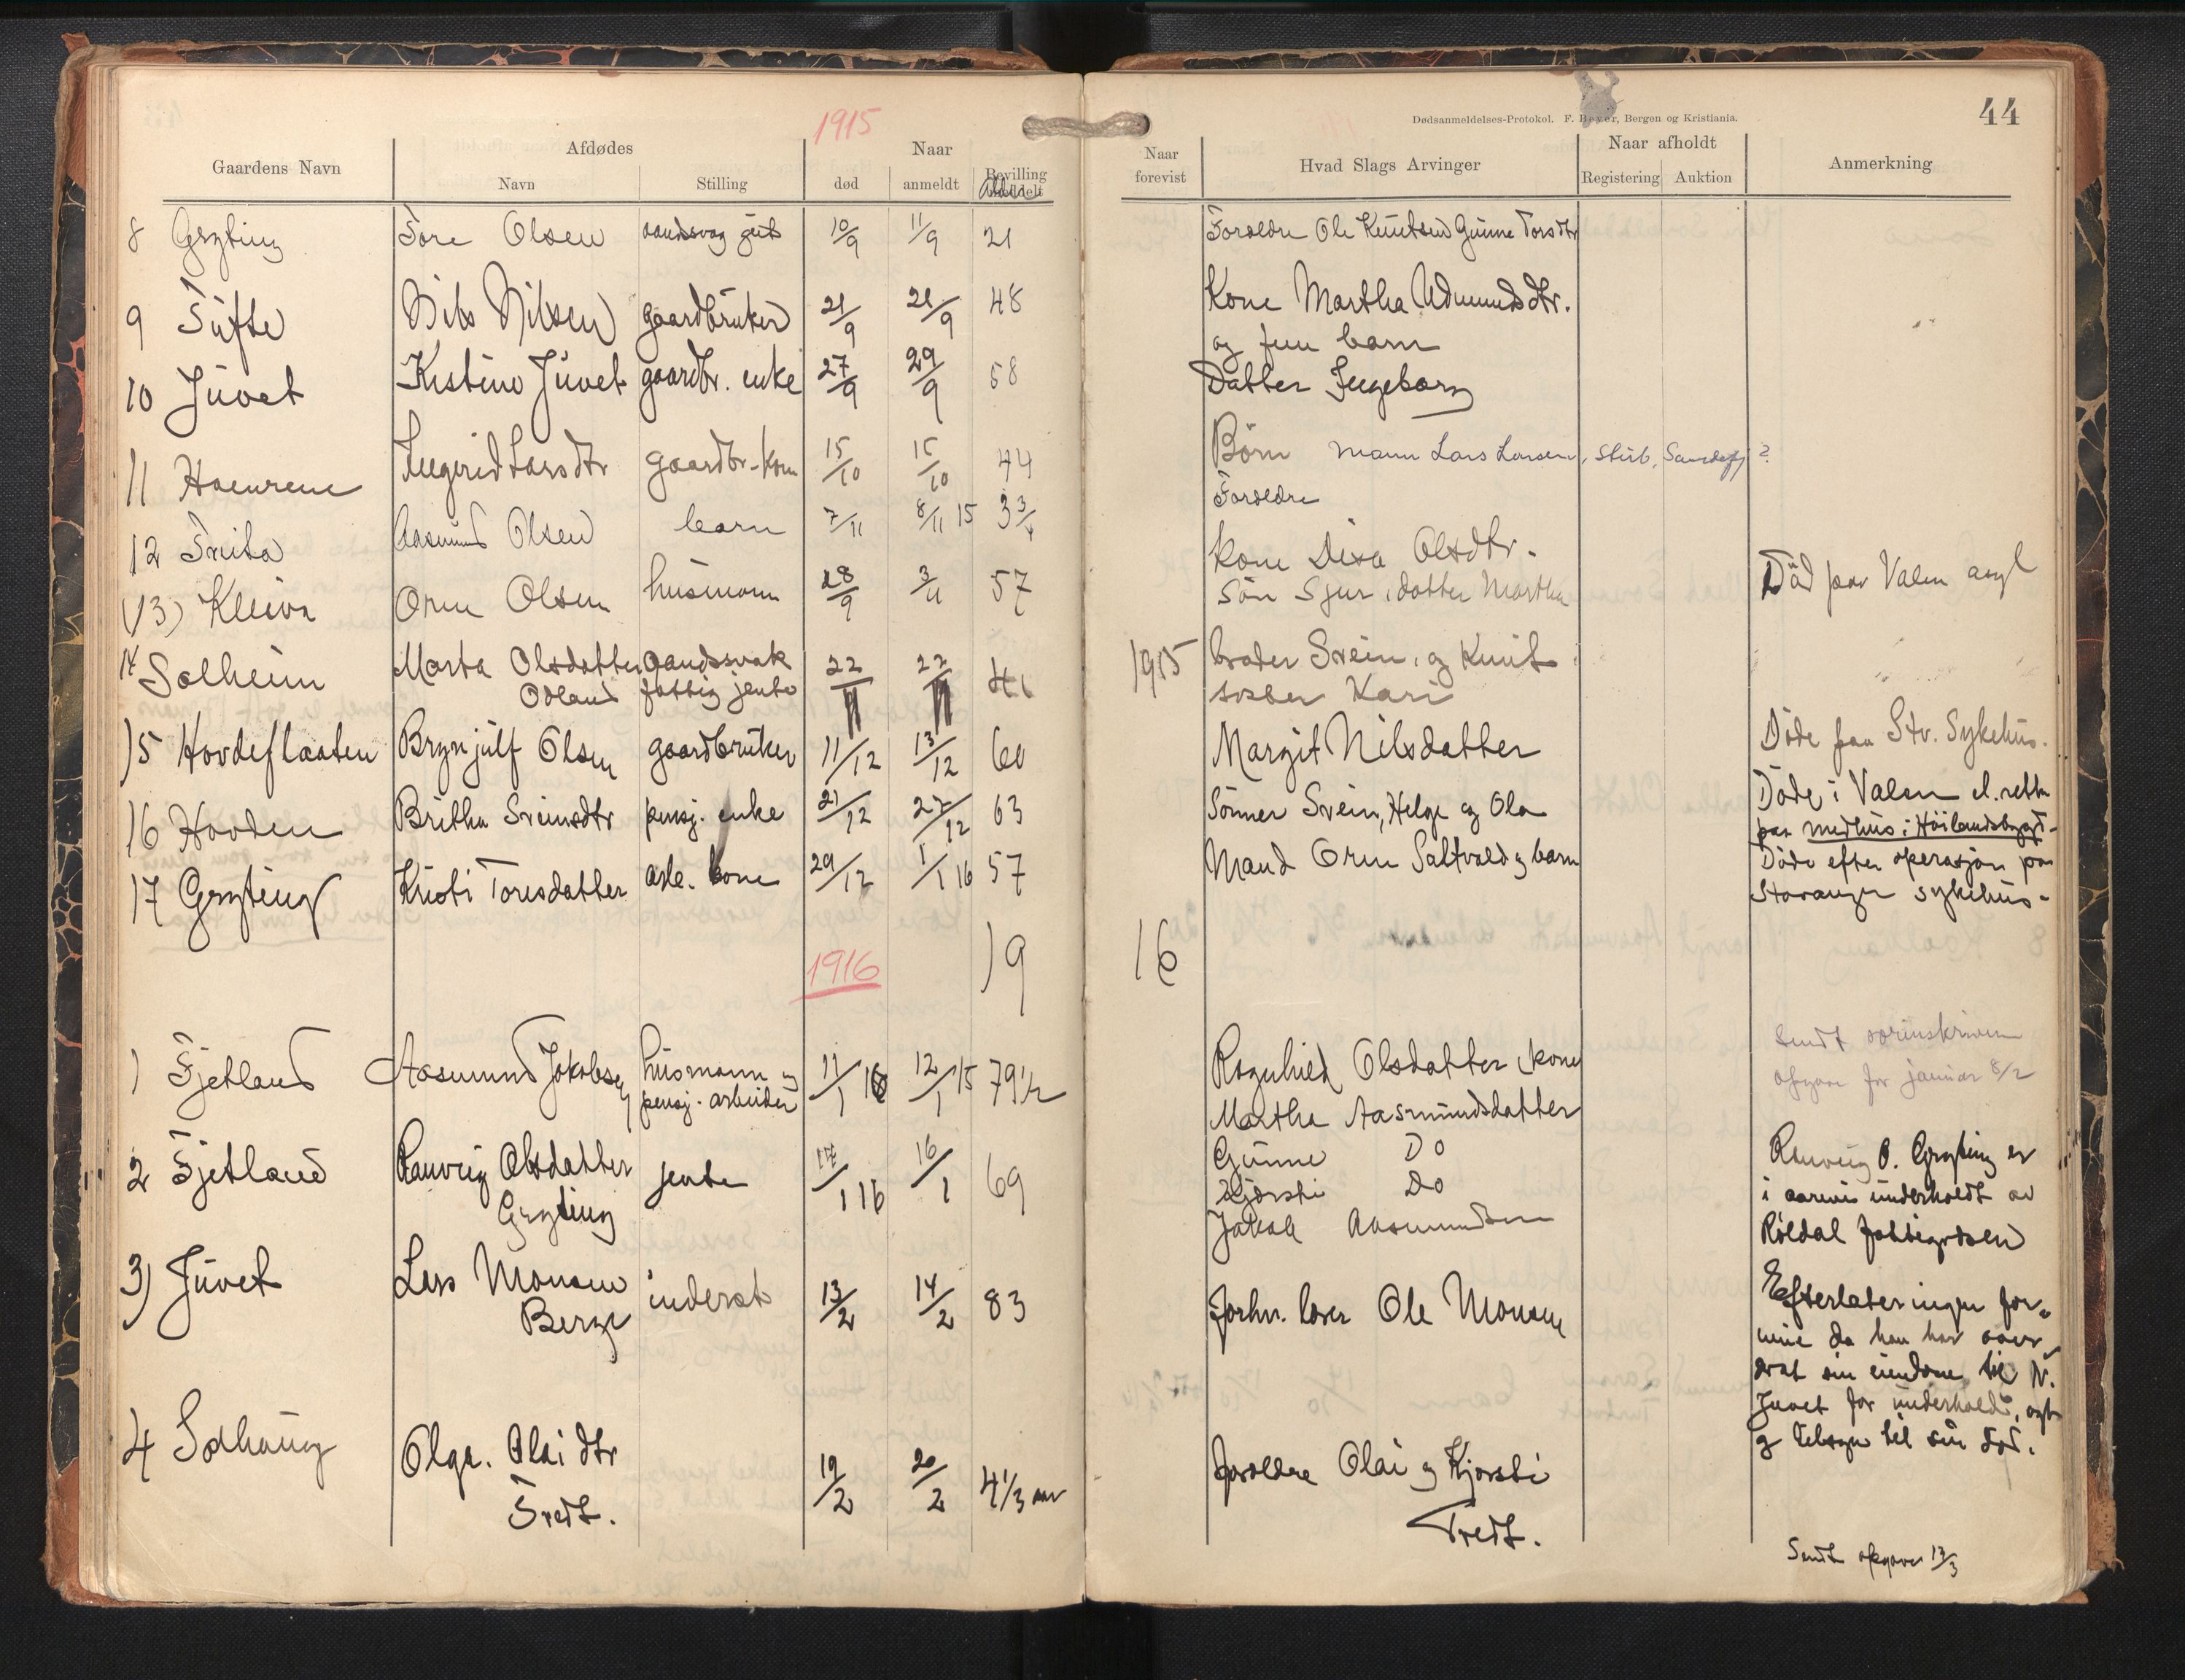 1915
44
Dødsanmeldelses-Protokol. F. Beyer, Bergen og Kristiania.
Gaardens Navn
Afdødes
Navn
Stilling
Naar
død
anmeldt
Bevilling
Alder
Naar forevist
Hvad Slags Arvinger
Naar afholdt
Registering
Auktion
Anmerkning
8 Gryting Tore Olsen aandssvag gut 10/9 11/9 21 Foreldre Ole Knutsen Gunne Torsdtr
9 Tufte Nils Nilsen gaardbruker 21/9 21/9 48 Kone Martha Admundsdtr.
og fem barn
10 Juvet Kistine Juvet gaardbr. enke 27/9 29/9 58 Datter Ingeborg
11 Ingerid Larsdtr gaardbr-kone 15/10 15/10 44 Børn Mann Lars Larsen, Stub, ?
12 Aasmund Olsen barn 7/11 8/11 15 3 3/4 Foreldre
13) Kleiva Orm Olsen husmann 28/9 3/11 57 Kone Olsdtr.
Sön Sjur, datter Martha
Död paa Valen asyl
14 Solheim Marta Olsdatter aandssvak 22/11 22/11 41 1915 broder Svein, og Knut
Odland fattig jente søster Kari
15 Hovdeflaaten Brynjulf Olsen gaardbruker 11/12 13/12 60 Margit Nilsdatter Döde paa Stv. Sykehus.
16 Hovden Britha Sveinsdtr pensj. enke 21/12 27/12 63 Sönner Svein, Helge og Ola Döde i Valen el. rette
paa medhus i Höilandsbygd-
17 Gryting Kristi Toresdatter arb. kone 29/12 1/1 16 57 Mand Orm Saltvold og barn Döde efter operasjon paa
Stavanger sykehus-
1916
19 16
1 Fjetland Aasmund Jakobsen husmann og 11/1 16 12/1 15 79 1/2 Ragnhild Olsdatter kone Sendt
pensj. arbeider opgave for januar 8/2
Martha Aasmundsdatter
Gunne Do
Kjersti Do
Jakob Aasmundsen
2 Fjetland Ranveig Olsdatter jente 17/1 16 16/1 69 Ranveig O. Gryting er
Gryting i aarevis underholdt av
Röldal fattigvæsen
3) Juvet Lars Monsen inderst 13/2 14/2 83 Forhv. lærer Ole Monsen Efterlater ingen for-
Berge mue da han har over
drat sin eiendom til N.
Juvet for underhold,
og tilsyn til sin död.
4 Solhaug Olga. Olai dtr 19/2 20/2 4 1/3 aar foreldre Olai og Kjersti
Tredt. Tredt.
Sendt opgave 13/3